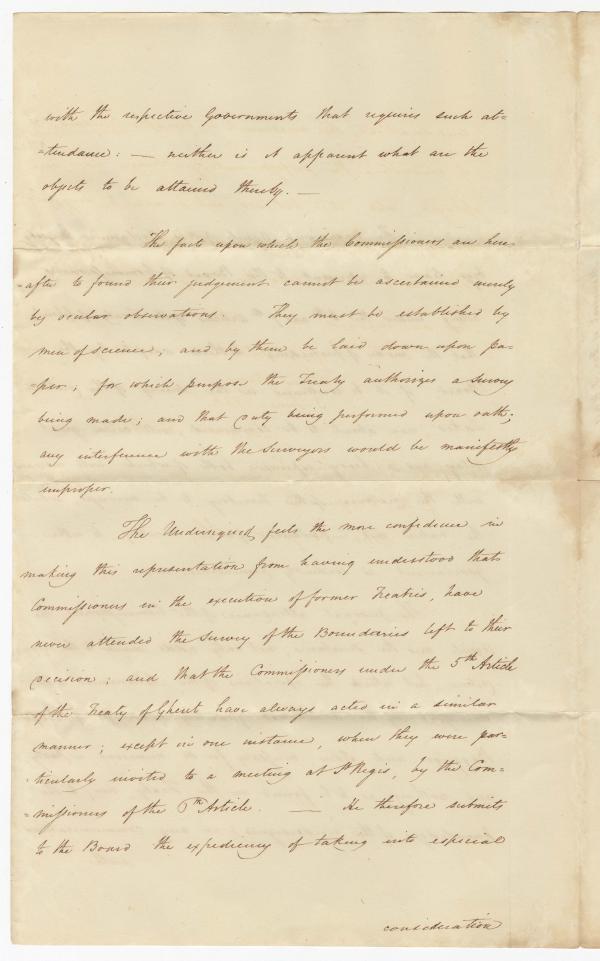 with the respective Governments that requires such at=
=tendance: — neither is it apparent what are the
objects to be attained thereby. —
The facts upon which the Commissioners are here-
=after to found their judgement cannot be ascertained merely
by ocular observations. They must be established by
men of science; and by them be laid down upon pa=
=per; for which purpose the Treaty authorizes a Survey
being made; and that duty being performed upon oath;
any interference with the Surveyors would be manifestly
improper.
The Undersigned, feels the more confidence in
making this representation from having understood that
Commissioners in the execution of former Treaties, have
never attended the Survey of the Boundaries left to their
decision; and that the Commissioners under the 5th Article
of the Treaty of Ghent have always acted in a similar
manner; except in one instance, when they were par=
ticularly invited to a meeting at St Regis, by the Com=
=missioners of the 6th Article. — He therefore submits
to the Board the expediency of taking into especial
consideration